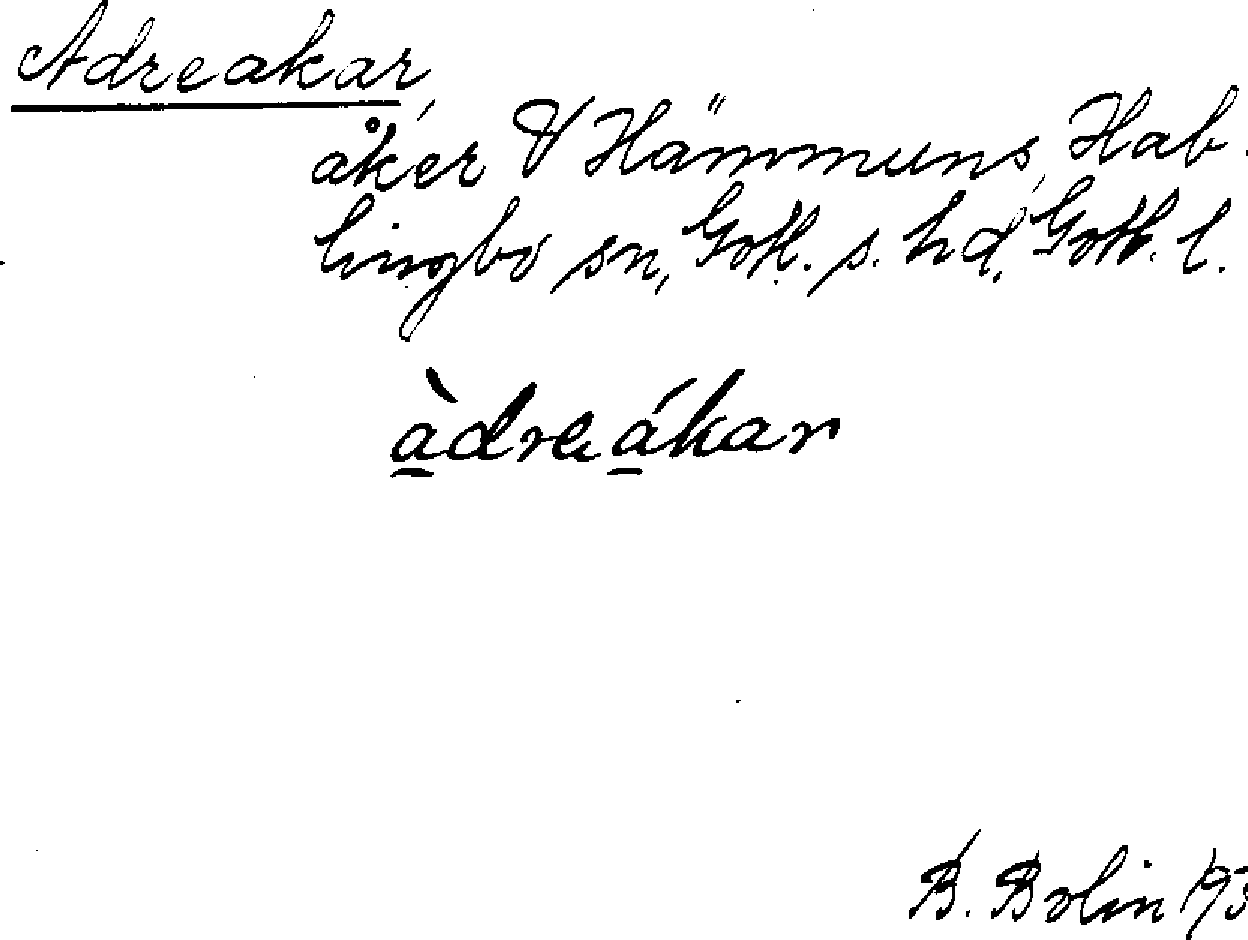 Adreakar,
åker V Hämmuns, Hab-
lingbo sn, Gotl. s. hd, Gotl. l.
àdreákar
B. Bolin 193